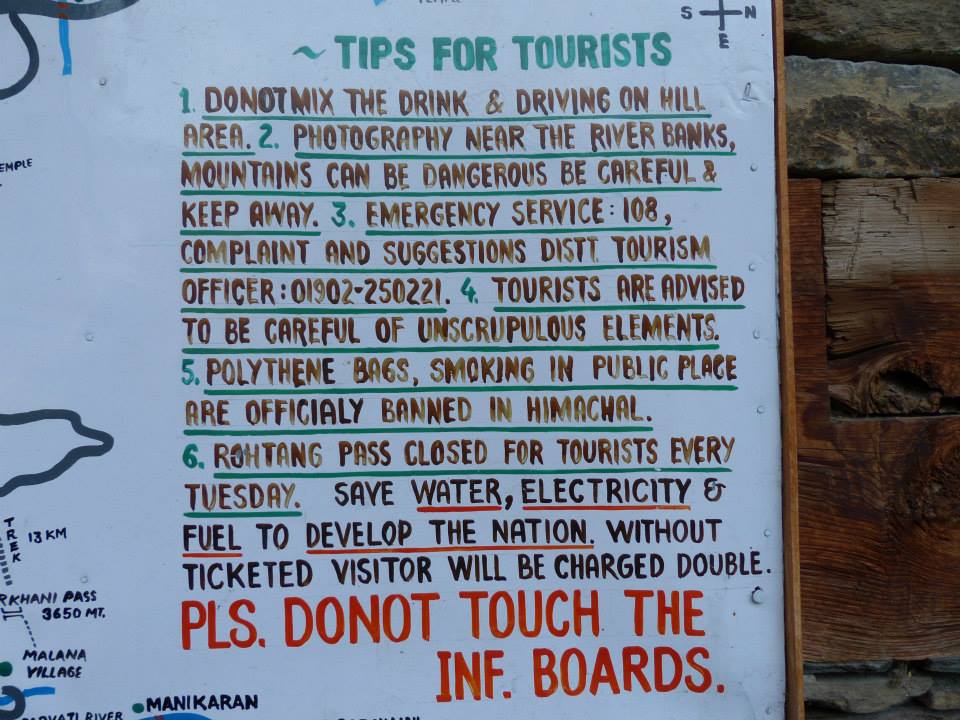 S N
E
~ TIPS FOR TOURISTS
1. DONOT MIX THE DRINK & DRIVING ON HILL
AREA. 2. PHOTOGRAPHY NEAR THE RIVER BANKS,
MOUNTAINS CAN BE DANGEROUS BE CAREFUL &
KEEP AWAY. 3. EMERGENCY SERVICE: 108,
COMPLAINT AND SUGGESTIONS DISTT. TOURISM
OFFICER: 01902-250221. 4. TOURISTS ARE ADVISED
TO BE CAREFUL OF UNSCRUPULOUS ELEMENTS.
5. POLYTHENE BAGS, SMOKING IN PUBLIC PLACE
ARE OFFICIALY BANNED IN HIMACHAL.
6. ROHTANG PASS CLOSED FOR TOURISTS EVERY
TUESDAY. SAVE WATER, ELECTRICITY &
FUEL TO DEVELOP THE NATION. WITHOUT
TICKETED VISITOR WILL BE CHARGED DOUBLE.
PLS. DONOT TOUCH THE
INF. BOARDS.
TREK 13 KM
PASS
3650 MT.
MALANA
VILLAGE
MANIKARAN
RIVER